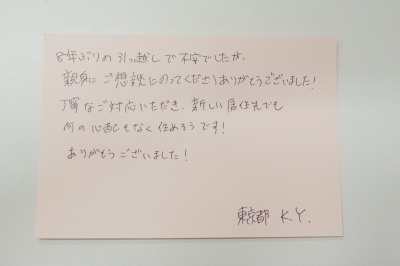 8年ぶりの引っ越しで不安でしたが、
親身にご相談にのってくださりありがとうございました!
丁寧なご対応いただき、新しい居住先でも
何の心配もなく住めそうです!
ありがとうございました!
東京都 K.Y.